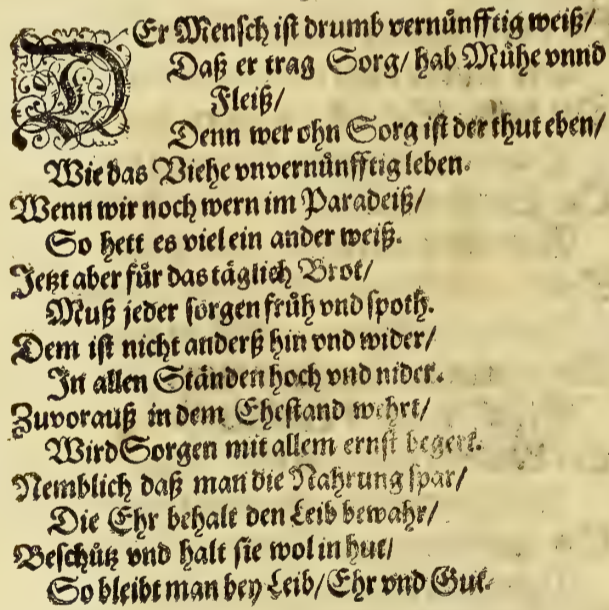 DEr Mensch ist drumb vernünfftig weiß/
Daß er trag Sorg/ hab Mühe vnnd
Fleiß/
Denn wer ohn Sorg ist der thut eben/
Wie das Viehe vnvernünfftig leben.
Wenn wir noch wern im Paradeiß/
So hett es viel ein ander weiß.
Jetzt aber für das täglich Brot/
Muß jeder sorgen früh vnd spoth.
Dem ist nicht anderß hin vnd wider/
In allen Ständen hoch vnd nider.
Zuvorauß in dem Ehestand wehrt/
Wird Sorgen mit allem ernst begert.
Nemblich daß man die Nahrung spar/
Die Ehr behalt den Leib bewahr/
Beschütz vnd halt sie wol in hut/
So bleibt man bey Leib/ Ehr vnd Gut.